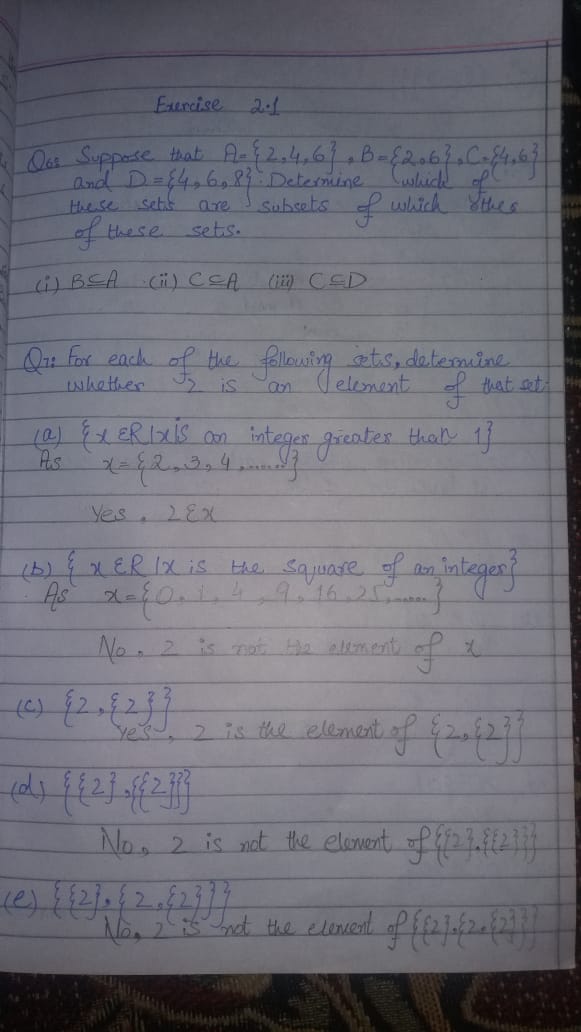 Exercise 2.1
Q6: Suppose that A={2,4,6}, B={2,6}, C={4,6}
and D={4,6,8}. Determine which of
these sets are subsets of which other
of these sets.
(i) B⊆A (ii) C⊆A (iii) C⊆D
Q7: For each of the following sets, determine
whether 2 is an element of that set.
(a) {x ∈R | x is an integer greater than 1}
As x={2,3,4,......}
Yes, 2∈x
(b) {x ∈R | x is the square of an integer}
As x={0,1,4,9,16,25,.....}
No, 2 is not the element of x
(c) {2,{2}}
Yes, 2 is the element of {2,{2}}
(d) {{2},{{2}}}
No, 2 is not the element of {{2},{{2}}}
(e) {{2},{2,{2}}}
No, 2 is not the element of {{2},{2,{2}}}